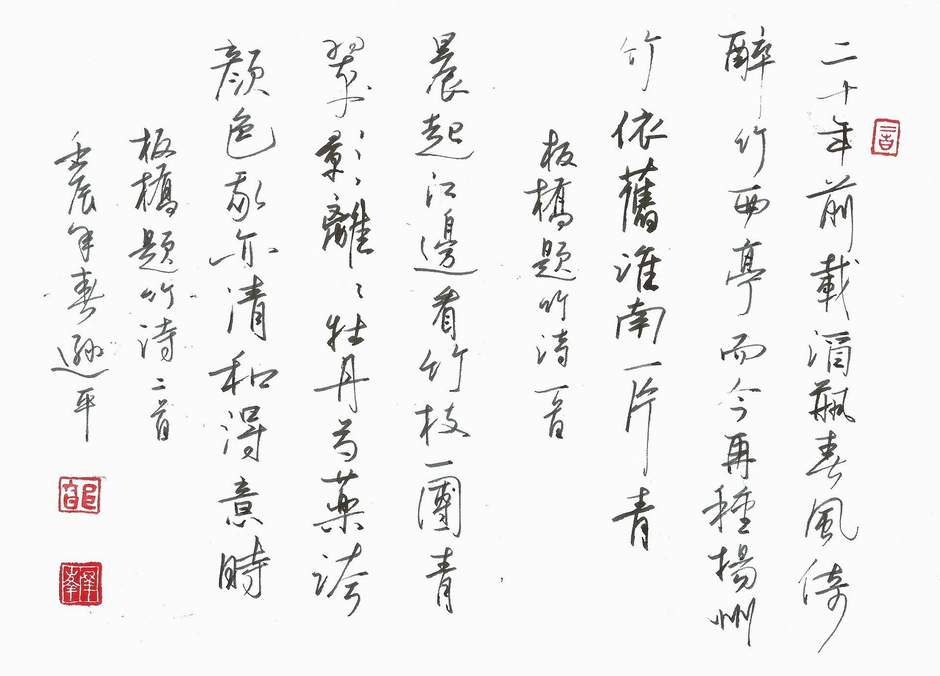 二十年前載酒瓶春風倚
醉竹西亭而今再種揚州
竹依舊淮南一片青
板橋題竹詩一首
晨起江邊看竹枝一團青
翠影離〻牡丹芍藥誇
顏色我亦清和得意時
板橋題竹詩二首
壬辰年春遜平